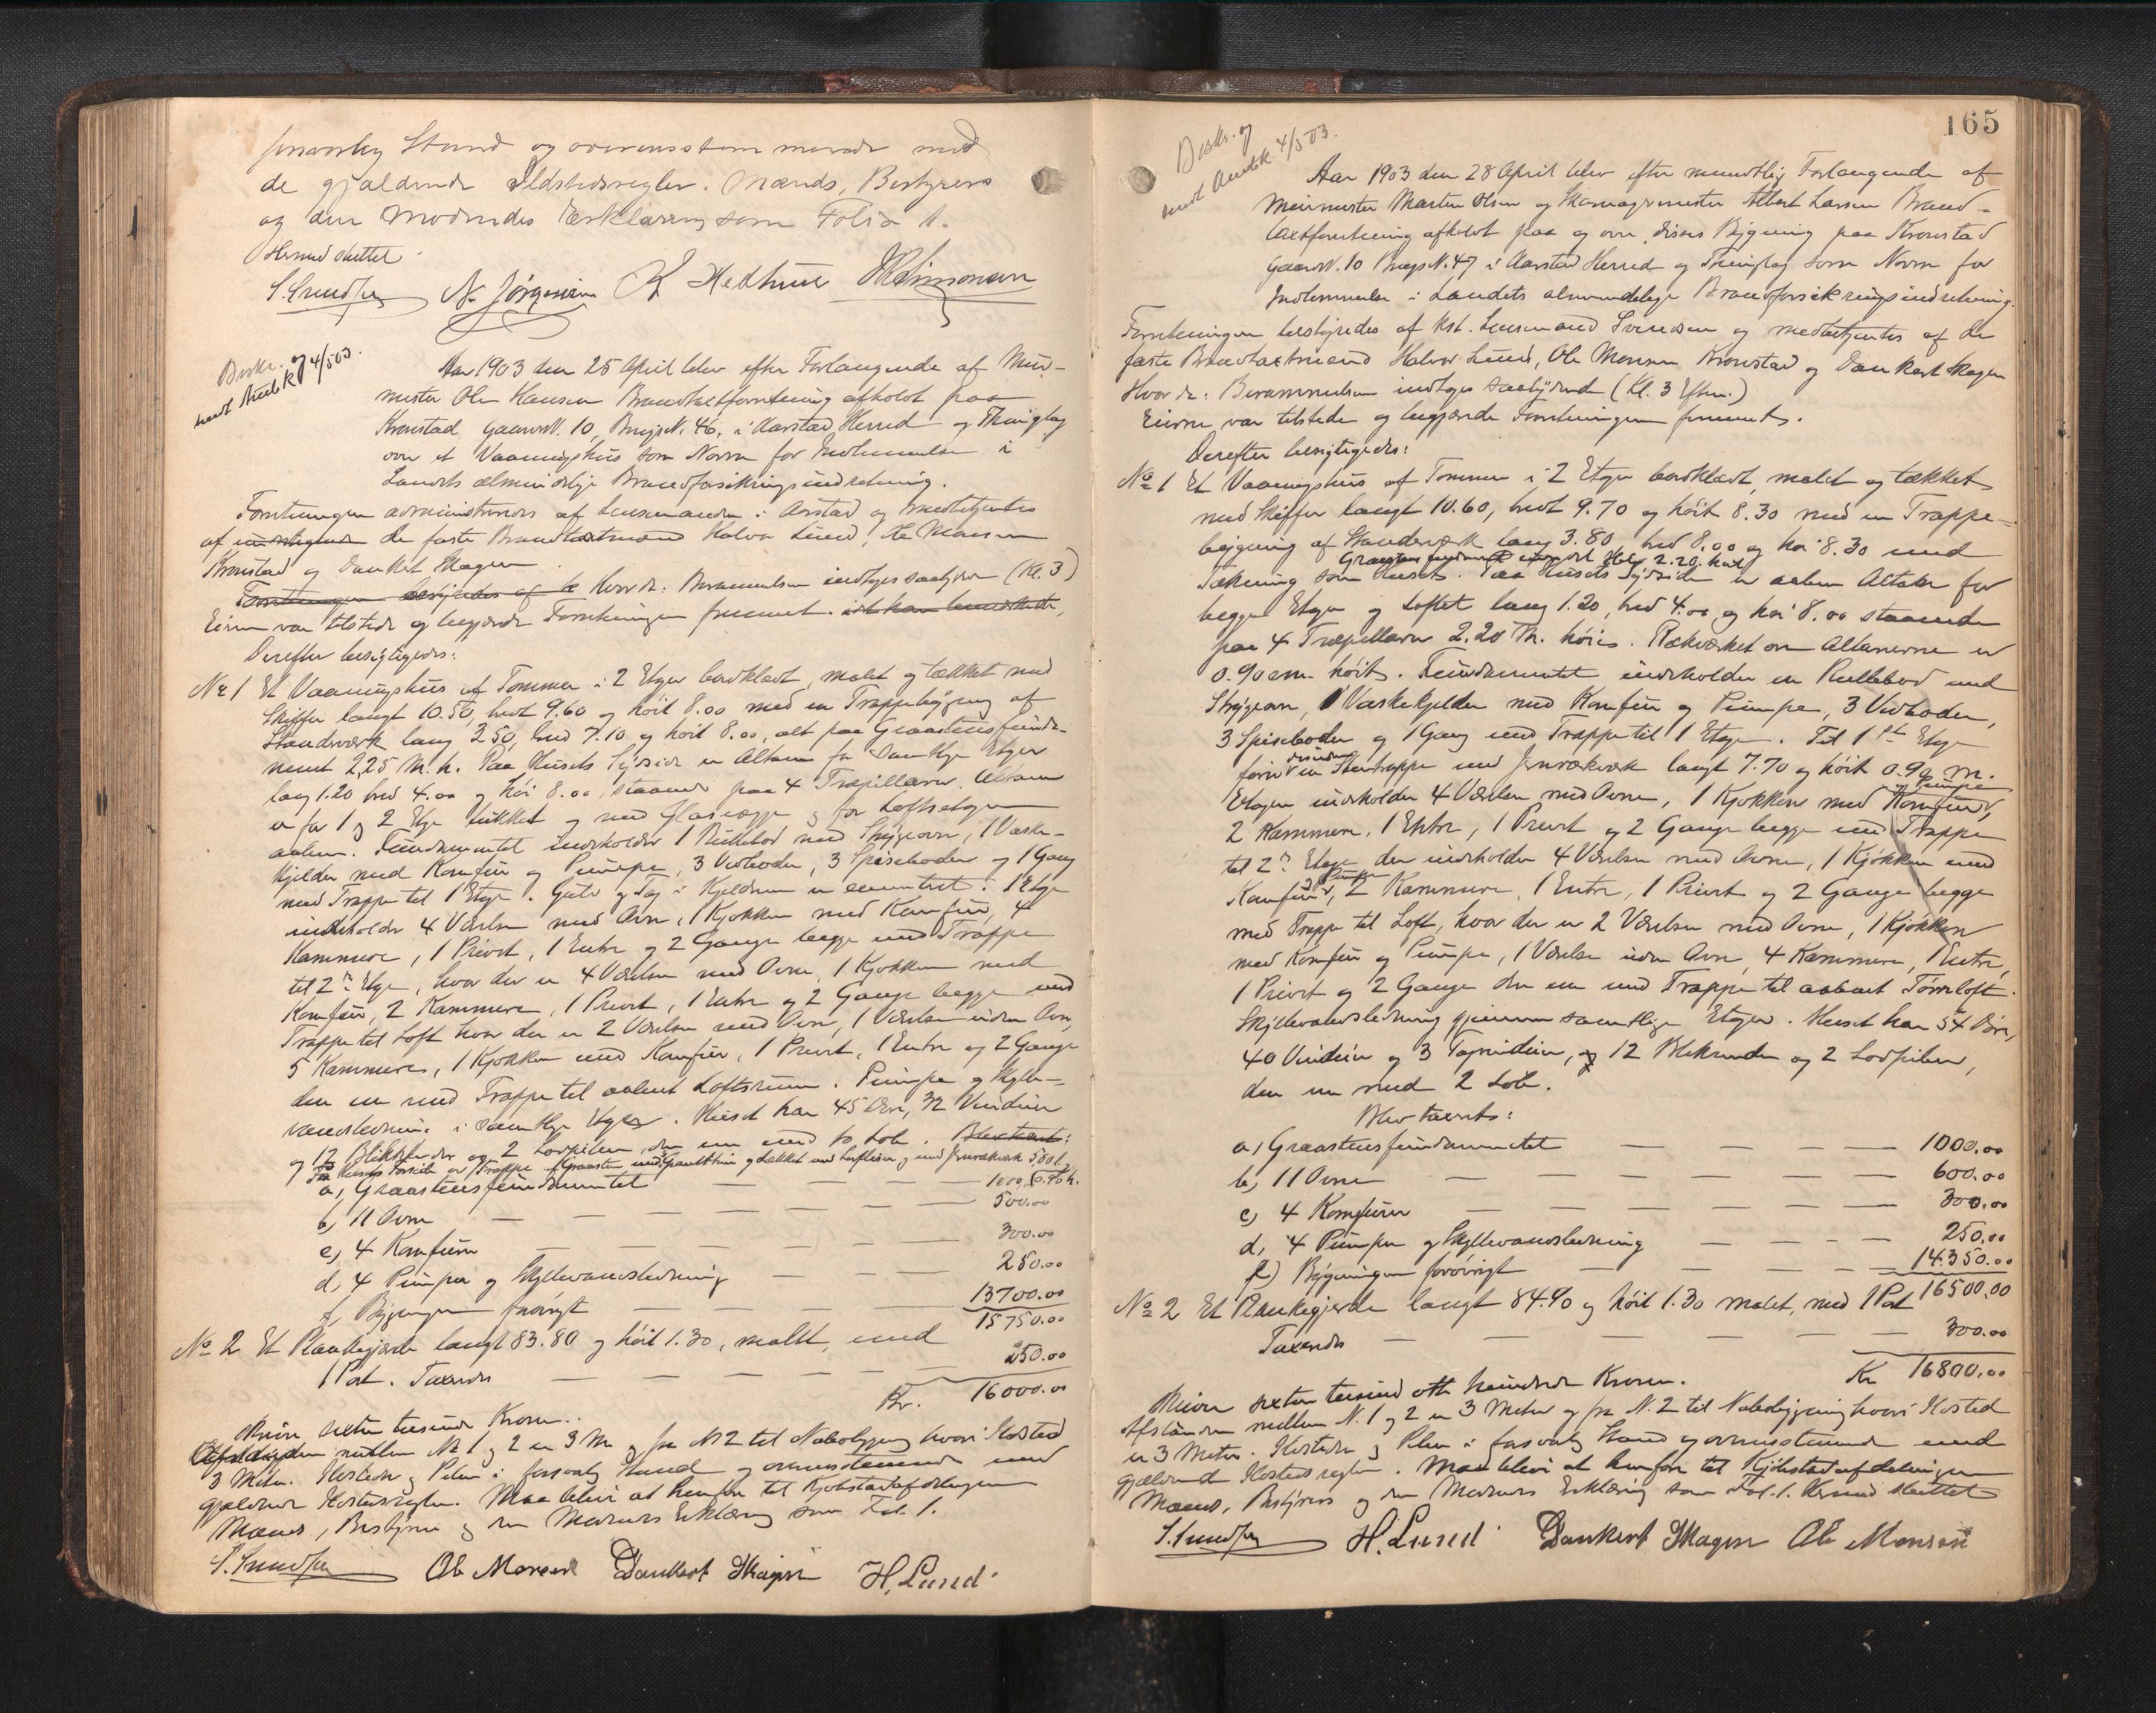 forsvarlig Stand og overensstemmende med
de gjældende Ildstedsregler. Mænds, Bestyrers
og den Mødendes Erklæring som Folio 1.
Hermed sluttet
N. Jørgensen K Hedtun
Beskr. og
sendt Amtsk 4/5 03.
Aar 1903 den 25 April blev efter Forlangende af Mur-
mester Ole Hansen Brandtaxtforretning afholdt paa
Kronstad Gaards N. 10, Brugs N. 46, i Aarstad Herred og Thinglag
over et Vaaningshus som Norm for Indlemmelse i
Landets almindelige Brandforsikringsindretning.
Forretningen administreredes af Lensmanden i Aarstad og medbetjentes
af de faste Brandtaxtmænd Halvor Lund, Ole Monsen
Kronstad og Dankert Skagen
Forretningen bestyredes af Hvor da: Berammelsen indtoges saalydende (Kl. 3)
Eieren var tilstede og begjærede Forretningen fremmet.
Derefter besigtigedes:
No 1 Et Vaaningshus af Tømmer i 2 Etager bordklædt, malet og tækket med
Skiffer langt 10.50, bredt 9.60 og høit 8.00 med en Trappebygning af
Standværk lang 2.50, bred 7.10 og høit 8.00, alt paa Graastensfunda-
ment 2,25 M. h. Paa Husets Sydside er Altaner for samtlige Etager
lang 1.20 bred 4.00 og høi 8.00, staaende paa 4 Træpillarer. Altanen
er for 1 og 2 Etge lukket og med Glasvægge og for Loftsetagen
aaben. Fundamentet indeholder 1 Rullebod med Strygeovn, 1 Vaske-
kjelder med Komfur og Pumpe, 3 Vedboder, 3 Spiseboder og 1 Gang
med Trappe til 1 Etge. Gulv og Tag i Kjelderen er cementret. 1 Etge
indeholder 4 Værelser med Ovne, 1 Kjøkken med Komfur, 4
Kammere, 1 Privet, 1 Entre og 2 Gange begge med Trappe
til 2den Etge, hvor der er 4 Værelser med Ovne, 1 Kjøkken med
Komfur, 2 Kammere, 1 Privet, 1 Entre og 2 Gange begge med
Trappe til Loft hvor der er 2 Værelser med Ovn, 1 Værelse uden Ovn,
5 Kammere, 1 Kjøkken med Komfur, 1 Privet, 1 Entre og 2 Gange
den ene med Trappe til aabent Loftsrum. Pumpe og Skylle-
vandsledning i samtlige Etager. Huset har 45 Døre, 32 Vinduer
og 12 Blikrender og 2 Lodpiber, den ene med to Løb. Blev taxeret:
Paa Husets Forside er Trappe af Graasten med
a, Graastensfundamentet — — — 1000.00
b, 11 Ovne — — — 500.00
c, 4 Komfurer — — — 300.00
d, 4 Pumper og Skyllevandsledning — — 250.00
f, Bygningen forøvrigt — — — 13700.00
15750.00
No 2 Et Plankegjerde langt 83.80 og høit 1.30, malet, med
1 Port. Taxeredes — — — 250.00
Kr. 16000.00
Skriver sexten tusinde Kroner.
Afstanden mellem No 1 og 2 er 3 M og fra No 2 til Nabobygning hvori Ildsted
3 Meter. Ildsteder og Piber i forsvarlig Stand og overensstemmende med
gjældende Ildstedsregler. Maa blive at henføre til Kjøbstadafdelingen
Mænds, Bestyrers og den Mødendes Erklæring som Fol. 1.
Ole Monsen Dankert Skagen H. Lund
165
Beskr. og
sendt Amtsk. 4/5 03.
Aar 1903 den 28 April blev efter mundtlig Forlangende af
Murmester Martin Olsen og Skomagermester Albert Larsen Brand-
taxtforretning afholdt paa og over disses Bygning paa Kronstad
Gaards N. 10 Brugs N. 47 i Aarstad Herred og Thinglag som Norm for
Indlemmelse i Landets almindelige Brandforsikringsindretning.
Forretningen bestyredes af Kst. Lensmand Svendsen og medbetjentes af de
faste Brandtaxtmænd Halvor Lund, Ole Monsen Kronstad og Dankert Skagen
Hvor da: Berammelsen indtoges saalydende (Kl. 3 Efterm.)
Eierne var tilstede og begjærede Forretningen fremmet.
Derefter besigtigedes:
No 1 Et Vaaningshus af Tømmer i 2 Etager bordklædt, malet og tækket
med Skiffer langt 10.60, bredt 9.70 og høit 8.30 med en Trappe-
bygning af Standværk lang 3.80 bred 8.00 og høi 8.30 med
Tækning som Huset. Paa Husets Sydside er aaben Altaner for
begge Etager og Loftet lang 1.20, bred 4.00 og høi 8.00 staaende
paa 4 Træpillarer 2.20 M. høies. Rækværket om Altanerne er
0.90 cm. høit. Fundamentet indeholder en Rullebod med
Strygeovn, 1 Vaskekjelder med Komfur og Pumpe, 3 Vedboder,
3 Spiseboder og 1 Gang med Trappe til 1 Etage. Til 1ste Etage
fører en Stentrappe med Jernrækværk langt 7.70 og høit 0.90 M.
Etagen indeholder 4 Værelser med Ovne, 1 Kjøkken med Komfur og Pumpe,
2 Kammere, 1 Entre, 1 Privet og 2 Gange begge med Trappe
til 2den Etage der indeholder 4 Værelser med Ovne, 1 Kjøkken med
Komfur og Pumpe, 2 Kammere, 1 Entre, 1 Privet og 2 Gange begge
med Trappe til Loft, hvor der er 2 Værelser med Ovne, 1 Kjøkken
med Komfur og Pumpe, 1 Værelse uden Ovn, 4 Kammere, 1 Entre,
1 Privet og 2 Gange den ene med Trappe til aabent Tørreloft.
Skyllevandsledning gjennem samtlige Etager. Huset har 54 Døre,
40 Vinduer og 3 Tagvinduer, og 12 Blikrender og 2 Lodpiber,
den ene med 2 Løb.
Blev taxeret:
a, Graastensfundamentet — — — 1000.00
b, 11 Ovne — — — 600.00
c, 4 Komfurer — — — 300.00
d, 4 Pumper og Skyllevandsledning — — 250.00
f) Bygningen forøvrigt — — — 14.350.00
16500.00
No 2 Et Plankegjerde langt 84.90 og høit 1.30 malet, med 1 Port
Taxeredes — — — 300.00
Kr 16800.00
Skriver sexten tusind otte hundrede Kroner.
Afstanden mellem N. 1 og 2 er 3 Meter og fra N. 2 til Nabobygning hvori Ildsted
er 3 Meter. Ildsteder og Piber i forsvarlig Stand og overensstemmende med
gjældende Ildstedsregler. Maa blive at henføre til Kjøbstadafdelingen
Mænds, Bestyrers og den Mødendes Erklæring som Fol. 1. Hermed sluttet
H. Lund Dankert Skagen Ole Monsen